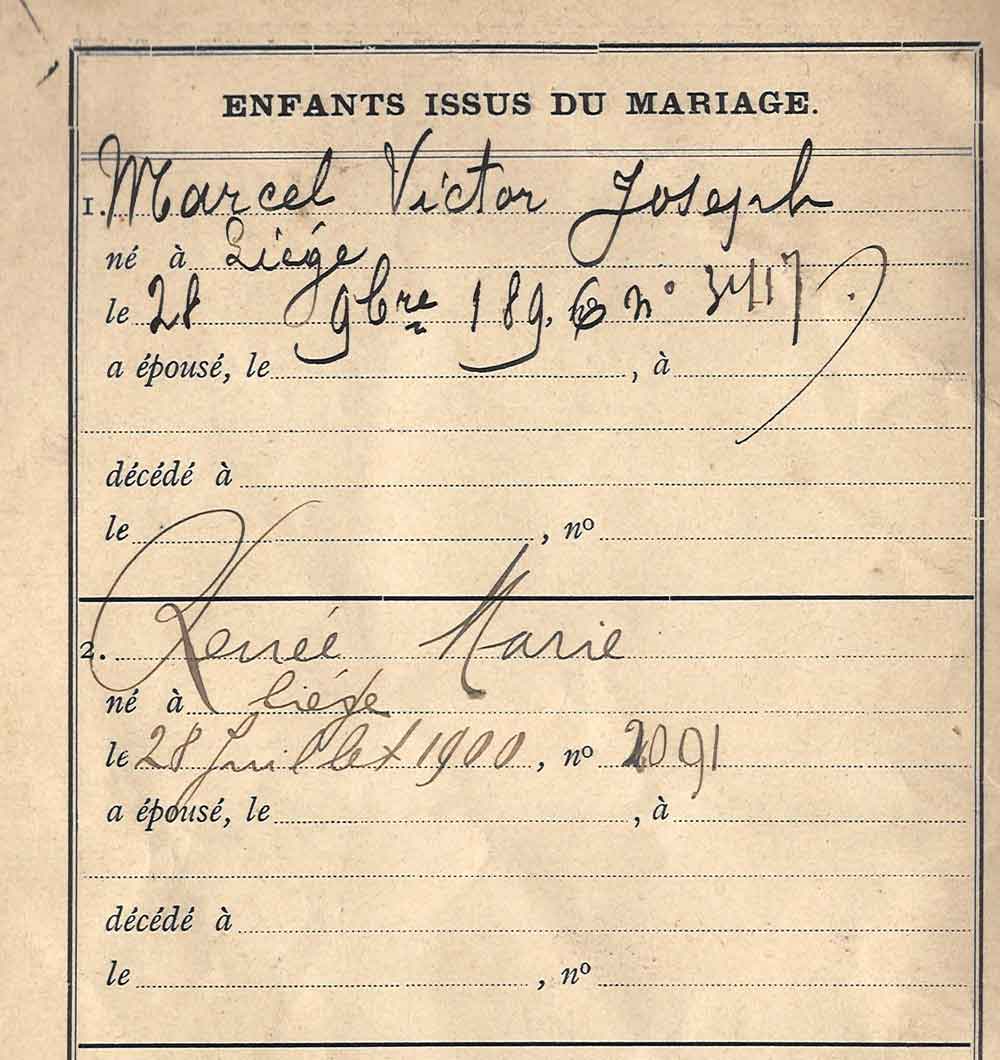 ENFANTS ISSUS DU MARIAGE.
1. Marcel Victor Joseph
né à Liége
le 28 9bre 1896 no 3417
a épousé, le , à
décédé à
le , no
2. Renée Marie
né à Liége
le 28 Juillet 1900, no 2091
a épousé, le , à
décédé à
le , no